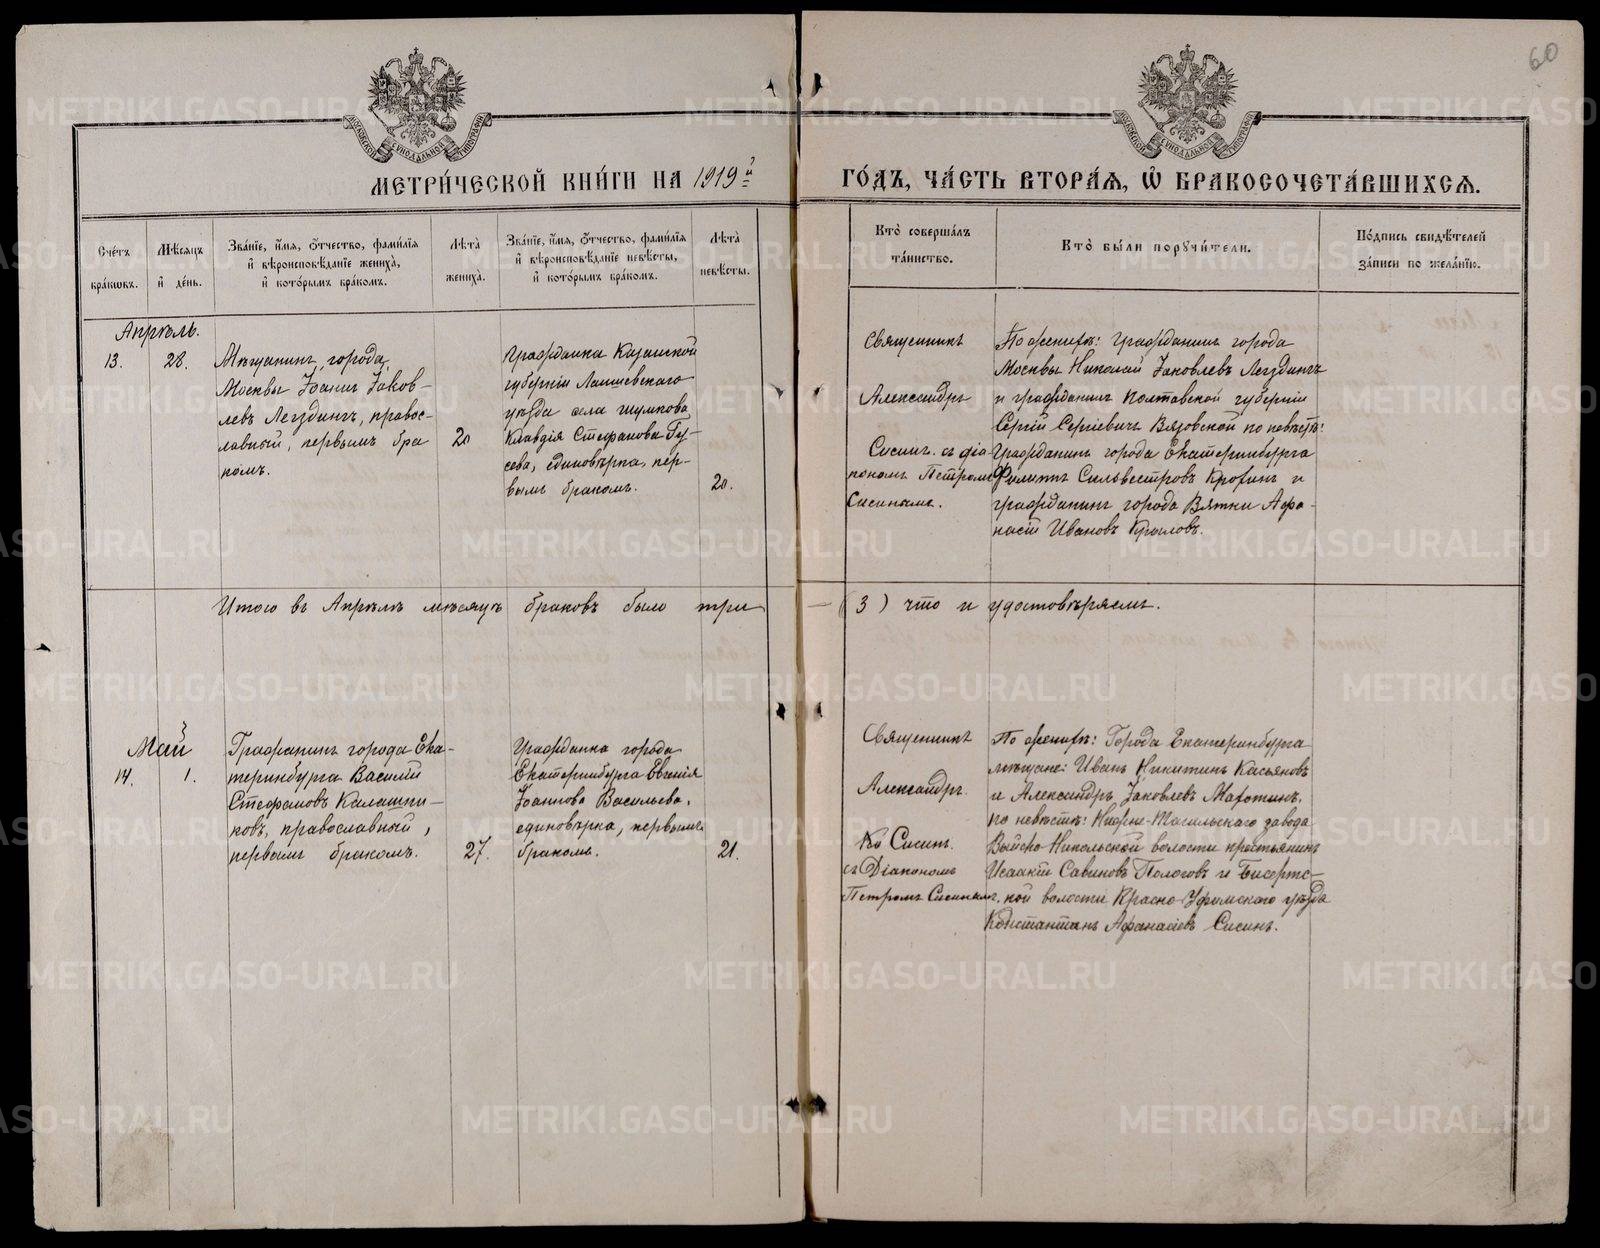 60
МОСКОВСКОЙ СѴНОДАЛЬНОЙ ТИПОГРАФІИ
МОСКОВСКОЙ СѴНОДАЛЬНОЙ ТИПОГРАФІИ
МЕТРИ́ЧЕСКОЙ КНИ́ГИ НА 1919й
ГО́ДЪ, ЧА́СТЬ ВТОРА́Ѧ, Ѽ БРАКОСОЧЕТА́ВШИХСѦ.
Сче́тъ бра́кѡвъ.
Мѣ́сяцъ и҆ де́нь.
Зва́нїе, и҆́мѧ, ѻ҆́тчество, фами́лїѧ и҆ вѣроисповѣ́данїе жениха̀, и҆ кото́рымъ бра́комъ.
Лѣ́та̀ жениха̀.
Зва́нїе, и҆́мѧ, ѻ҆́тчество, фами́лїѧ и҆ вѣроисповѣ́данїе невѣ́сты, и҆ кото́рымъ бра́комъ.
Лѣ́та̀ невѣ́сты.
Кто̀ соверша́лъ та́инство.
Кто̀ бы́ли порꙋчи́тели.
По́дпись свидѣ́телей за́писи по жела́нїю.
Апрѣль.
13.
28.
Мѣщанинъ города
Москвы Іоаннъ Іаков-
левъ Легздингъ, правос-
лавный, первымъ бра
комъ.
20
Гражданка Казанской
губерніи Лаишевскаго
уѣзда села Шумкова
Клавдія Стефанова Гу-
сева, единовѣрка, пер-
вымъ бракомъ.
20.
Священникъ
Александръ
Сисинъ. съ діа-
кономъ Петромъ
Сисинымъ.
По женихѣ: гражданинъ города
Москвы Николай Іаковлевъ Легздингъ
и гражданинъ Полтавской губерніи
Сергій Сергіевичъ Вязовской по невѣстѣ:
Гражданинъ города Екатеринбурга
Филиппъ Сильвестровъ и
гражданинъ города Вятки Афа-
насій Ивановъ Крыловъ.
Итого въ Апрѣлѣ мѣсяцѣ браковъ было три
— (3) что и удостовѣряемъ.
Май
14.
1.
Гражданинъ города Ека-
теринбурга Василій
Стефановъ Калашни-
ковъ, православный,
первымъ бракомъ.
27.
Гражданка города
Екатеринбурга Евгенія
Іоаннова Васильева,
единовѣрка, первымъ
бракомъ.
21.
Священникъ
Александръ
Сисинъ.
съ Діакономъ
Петромъ Сисинымъ.
По женихѣ: Города Екатеринбурга
мѣщане: Иванъ Никитинъ Касьяновъ
и Александръ Іаковлевъ Махотинъ,
по невѣстѣ: Нижне-Тагильскаго завода
Выйско-Никольской волости крестьянинъ
Исаакій Савиновъ Пологовъ и Бисертс-
кой волости Красно-Уфимскаго уѣзда
Константинъ Афанасіевъ Сисинъ.
METRIKI.GASO-URAL.RU